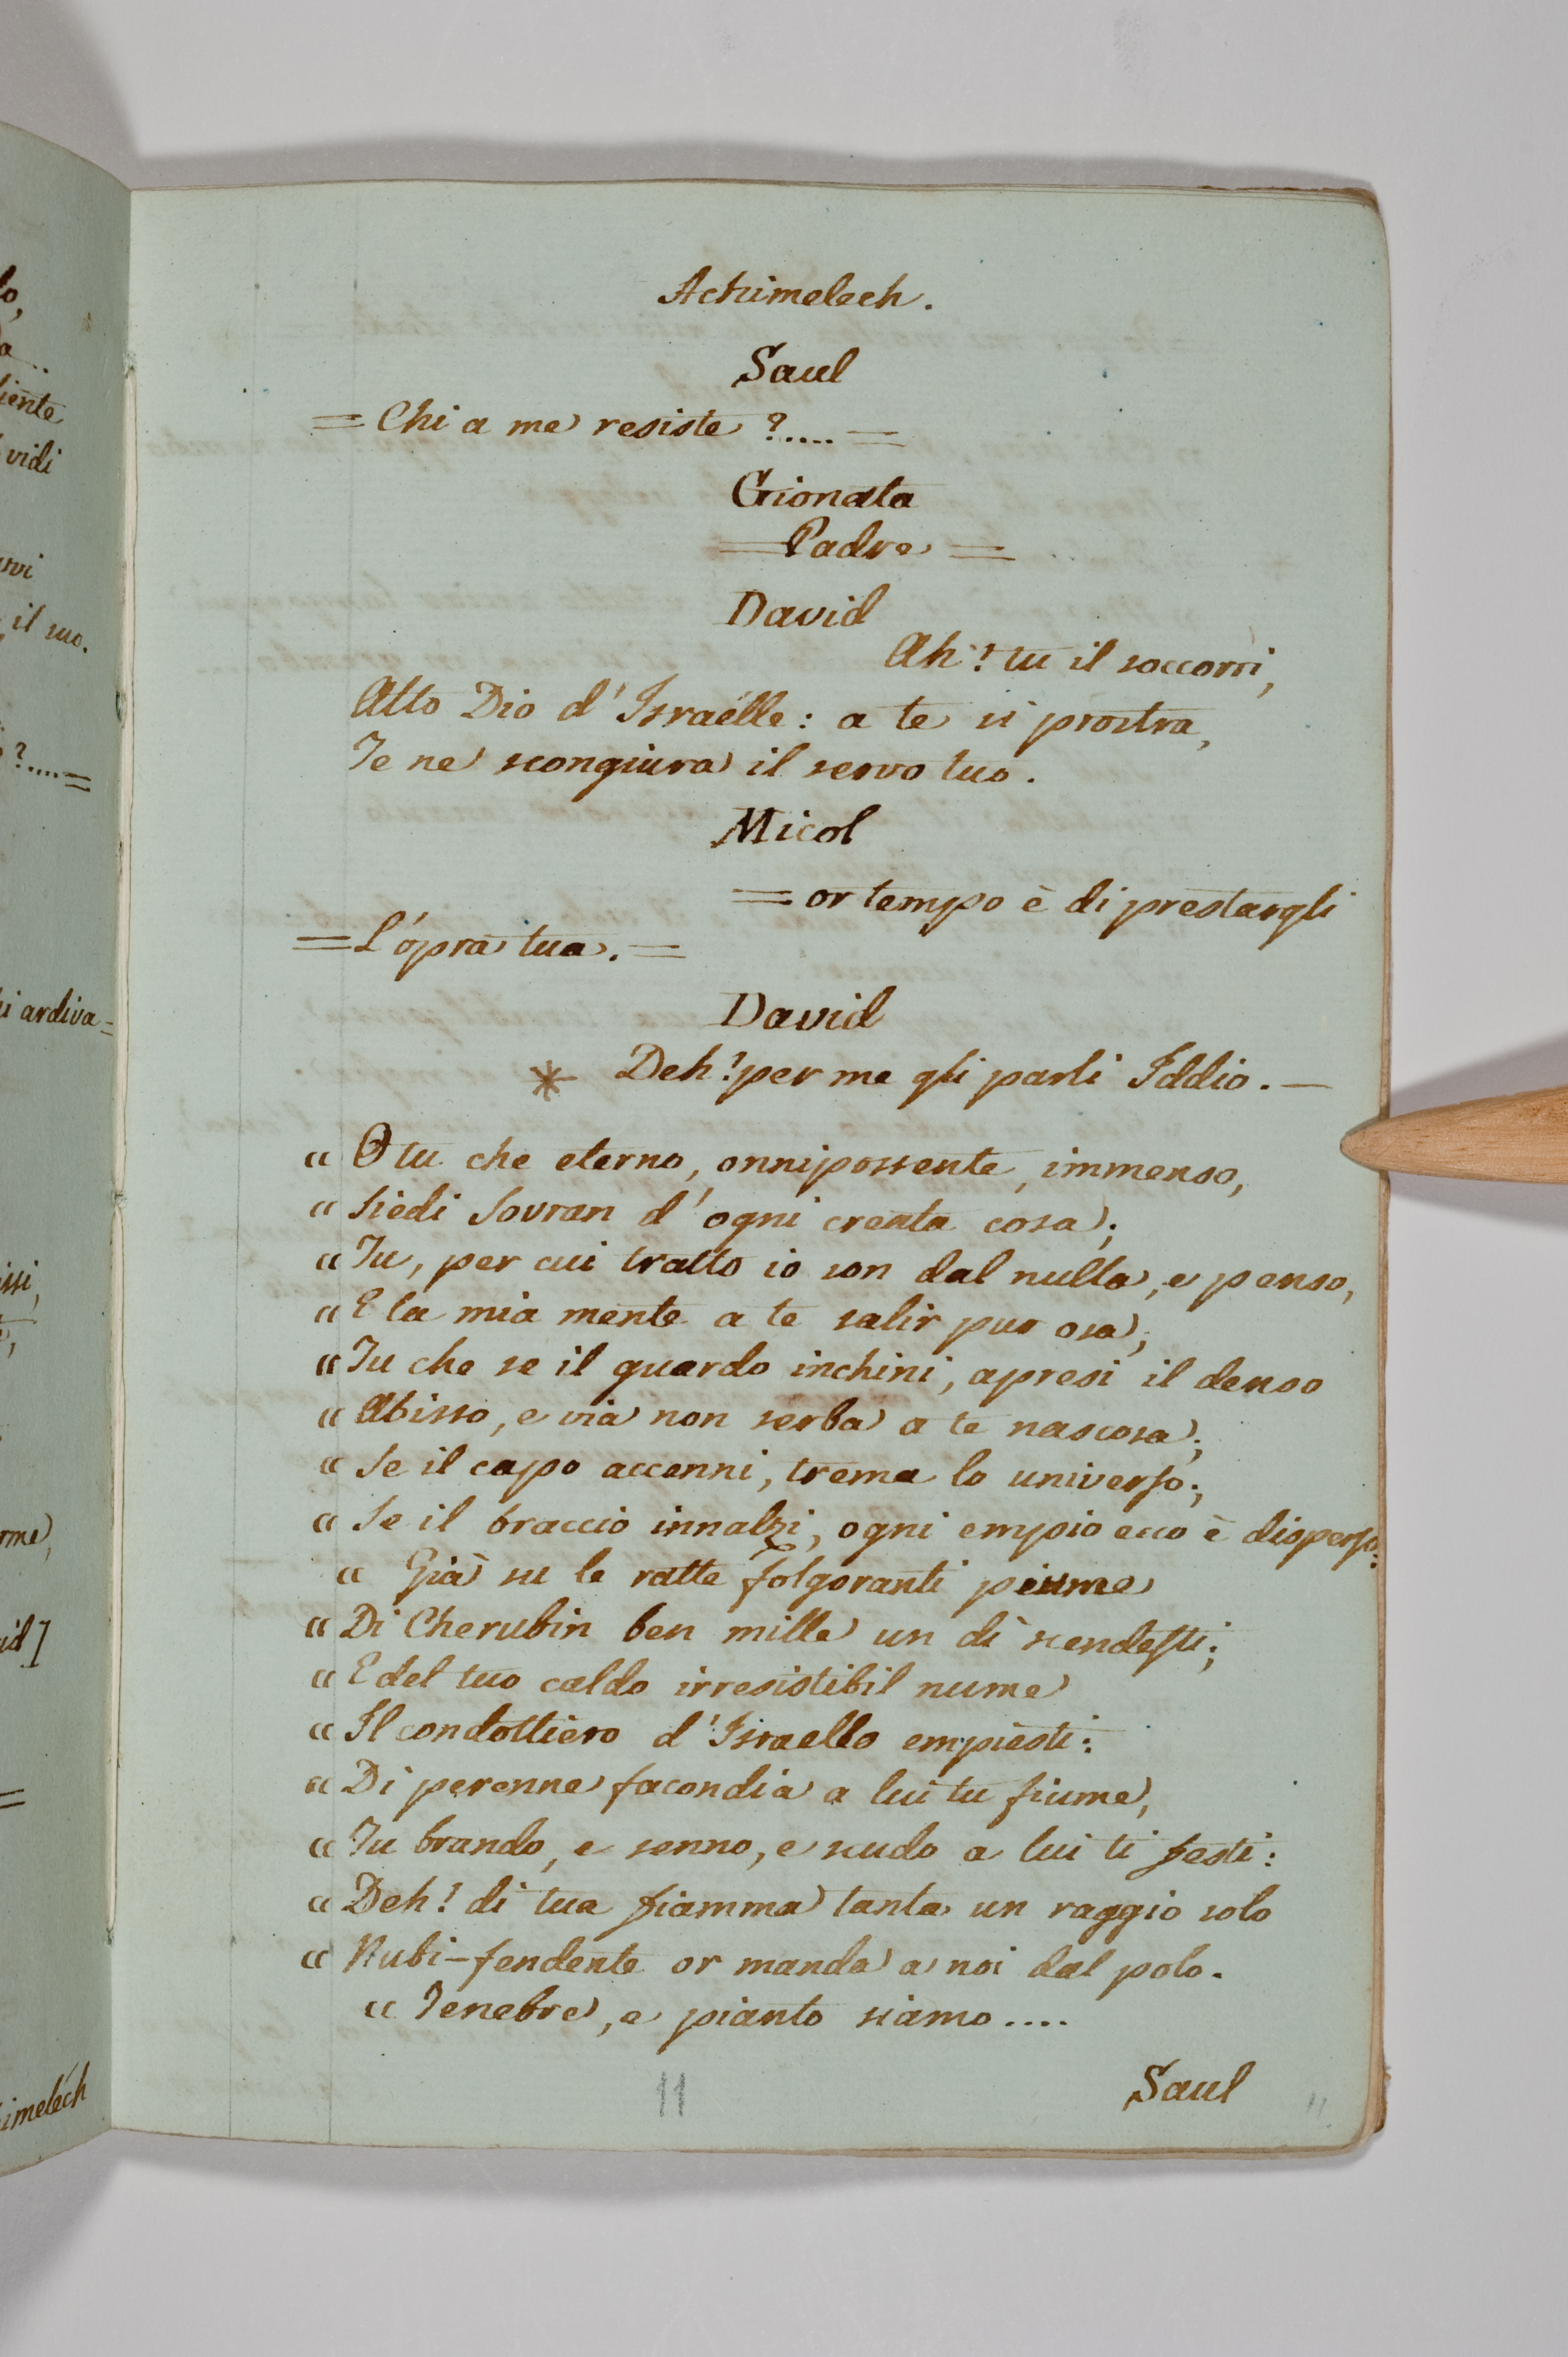 Achimelech.
Saul
= Chi a me resiste ?.... =
Gionata
= Padre =
David
Ah! tu il soccorri,
Alto Dio d'Israélle: a te si prostra,
Te ne scongiura il servo tuo.
Micol
= or tempo è di prestargli
= L'ópra tua. =
David
* Deh! per me gli parli Iddio. —
" O tu che eterno, onnipossente, immenso,
" Siedi Sovran d'ogni creata cosa;
" Tu, per cui tratto io son dal nulla, e penso,
" E la mia mente a te salir pur osa;
" Tu che se il guardo inchini, apresi il denso
" Abisso, e via non serba a te nascosa;
" Se il capo accenni, trema lo universo;
" Se il braccio innalzi, ogni empio ecco è disperso:
" Già su le ratte folgoranti piume
" Di Cherubin ben mille un dì scendesti;
" E del tuo caldo irresistibil nume
" Il condottiero d'Israello empiesti:
" Di perenne facondia a lui tu fiume,
" Tu brando, e senno, e scudo a lui ti festi:
" Deh! di tua fiamma tanta un raggio solo
" Nubi-fendente or manda a noi dal polo.
" Tenebre, e pianto siamo....
Saul
11
11
lo,
iente
vidi
il suo.
?....=
i ardiva=
issi,
rme,
id]
=
imeléch